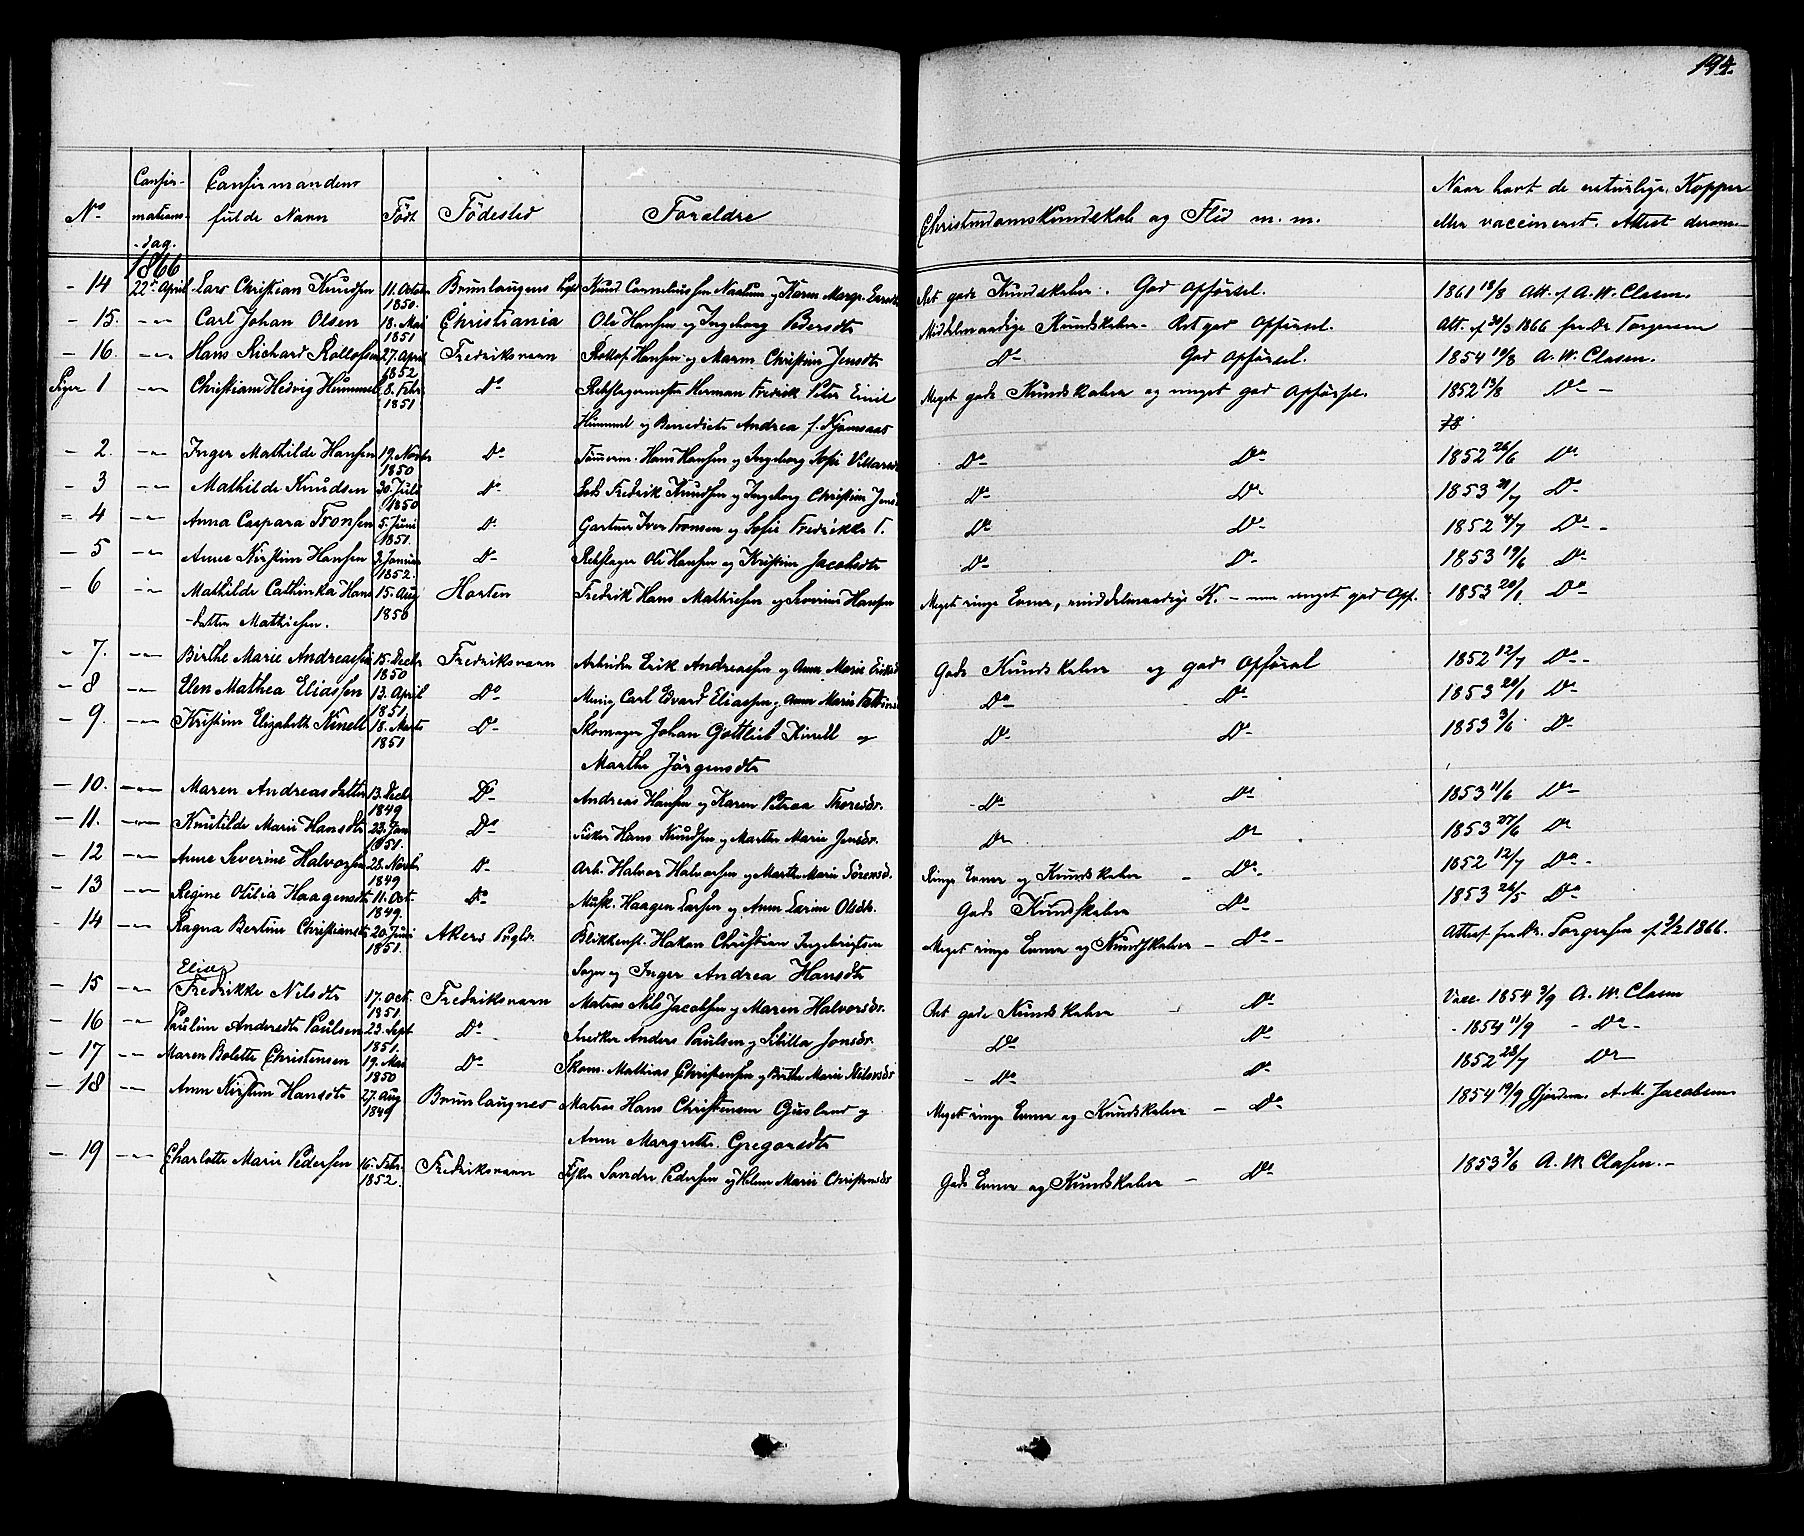 194.
No Confir- Confirmandens Født Fødested Forældre Christendomskundskab og Flid m. m. Naar havt de naturlige Kopper
mations- fulde Navn eller vaccineret. Attest derom
dag.
1866
- 14 22de April Lars Christian Knudsen 11. Octobr 1850. Brunlaugnes Knud Corneliussen og Karen Ret gode Kundskaber. God Opførsel. 1861 18/8 Att. f. A. W. Clasen.
- 15. -"- Carl Johan Olsen 18. Mai 1851 Christiania Ole Hansen og Ingeborg Pedersdtr Middelmaadige Kundskaber - Ret god Opførsel. Att. af 30/3 1866 fra Dr Torgersen
- 16. -"- Hans Richard Rolfsen 27. April 1852 Fredriksværn Hansen og Maren Christine Jensdtr Do God Opførsel. 1854 19/8 A. W. Clasen.
Piger 1 -"- Christiane Hedvig Hümmel 8. Febr 1851 Do Rebslagermester Herman Fredrik Peter Emil Meget gode Kundskaber og meget god Opførsel. 1852 13/8 Do -
Hümmel og Benedicte Andrea f.
- 2. -"- Inger Mathilde Hansen 19. Novbr 1850 Do Tømmerm. Hans Hansen og Ingeborg Sofie Do Do 1852 26/6 Do
- 3 -"- Mathilde Knudsen 30. Juli 1850 Do Fredrik Knudsen og Ingeborg Christine Do Do 1853 Do
- 4 -"- Anna Caspara Tronsen 5. Juni 1851. Do Gartner Iver Tronsen og Sofie Fredrikke T. Do Do 1852 4/7 Do -
- 5 -"- Anne Kirstine Hansen 3. Januar 1852. Do Rebslager Ole Hansen og Kristine Jacobsdtr Do Do 1853 19/6 Do
- 6 -"- Mathilde Cathinka Hans 15. Aug 1850 Horten Fredrik Hans Mathiesen og Severine Hansen Meget ringe Evner, middelmaadige K. - men meget god Opf. 1853 20/1. Do
-datter Mathiesen.
- 7. -"- Birthe Marie Andreassen 15. Decbr 1850 Fredriksværn Arbeider Erik Andreassen og Anne Marie Gode Kundskaber og god Opførsel 1852 12/7 Do -
- 8 -"- Elen Mathea Eliassen 13. April 1851. Do Carl Edvard Eliassen og Anne Marie Do Do 1853 20/1 Do
- 9. -"- Kristine Elizabeth Kinell 18. Marts 1851 Do Skomager Johan Gottlieb Kinell og Do Do 1853 3/6 Do
Marthe Jørgensdtr
- 10. -"- Maren Andreasdatter 13. Decbr 1849 Do Andreas Hansen og Karen Petrea Thoresdr. Do Do 1853 11/6 Do
- 11. -"- Knutilde Marie Hansdtr 23. Jan 1851. Do Fisker Hans Knudsen og Marthe Marie Jensdr. Do Do 1853 27/6 Do
- 12 -"- Anne Severine Halvorsen 28. Novbr 1849 Do Arb. Halvor Halvorsen og Marthe Marie Sørensdr. Ringe Evner og Kundskaber - Do 1852 12/7 Do -
- 13 -"- Regine Otilia Haagensdtr 11. Oct. 1849. Do Musk. Haagen Larsen og Anne Karine Olsdtr. Gode Kundskaber Do 1853 26/5 Do
- 14 -"- Ragna Bertine Christiansdtr 20. Juni 1851. Akers Prgld. Blikkensl. Hakon Christian Ingebrigtsen Meget ringe Evner og Kundskaber - Do - Attest fra Dr. Torgersen af 9/2 1866.
Sogn og Inger Andrea Hansdtr
Elise
- 15 -"- Fredrikke Nilsdtr 17. Oct. 1851. Fredriksværn Matros Nils Jacobsen og Maren Halvorsdr. Ret gode Kundskaber - Do Vacc. 1854 9/9 A. W. Clasen
- 16 -"- Pauline Andredtr Paulsen 23. Sept 1851. Do - Snedker Anders Paulsen og Sibilla Jonsdr. Do Do - 1854 11/9 - Do -
- 17 -"- Maren Bolette Christensen 19. Mai 1850 Do Skom. Mathias Christensen og Birthe Marie Nilsdr - Do Do 1852 28/7 Do
- 18 -"- Anne Kirstine Hansdtr 27. Aug 1849 Brunlaugnes Matros Hans Christensen Gusland og Meget ringe Evner og Kundskaber - Do 1854 19/9 Gjordem. A. M. Jacobsen
Anne Margrethe Gregorsdtr
- 19 -"- Charlotte Marie Pedersen 16. Febr. 1852. Fredriksværn Fisker Sondre Pedersen og Helene Marie Christensdr Gode Evner og Kundskaber - Do 1853 3/6 A. W. Clasen. -